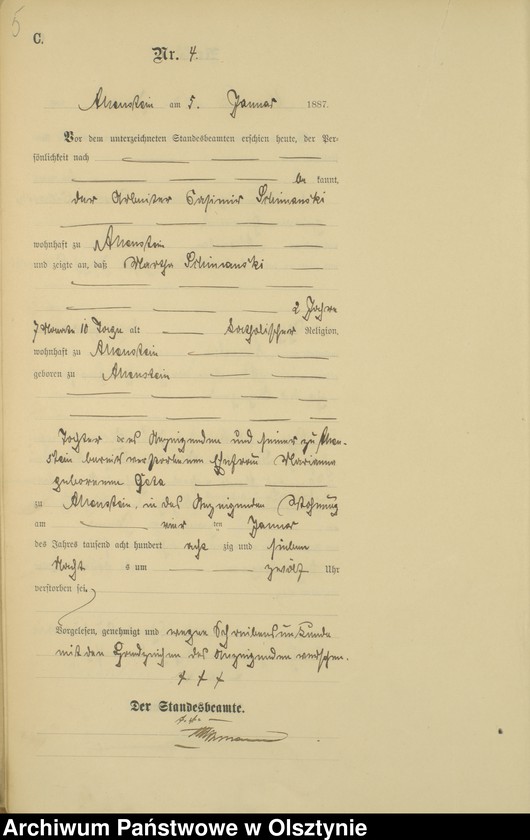 5
C.
Nr. 4.
Allenstein am 5. Januar 1887.
Vor dem unterzeichneten Standesbeamten erschien heute, der Per-
sönlichkeit nach
be kannt,
der Arbeiter Casimir Schimanski
wohnhaft zu Allenstein
und zeigte an, daß Martha Schimanski
2 Jahre
7 Monate 10 Tage alt katholischer Religion,
wohnhaft zu Allenstein
geboren zu Allenstein
Tochter des Anzeigenden und seiner zu Allen-
stein bereits verstorbenen Ehefrau Marianna
geborenen
zu Allenstein, in des Anzeigenden Wohnung
am vier ten Januar
des Jahres tausend acht hundert acht zig und sieben
Nacht s um zwölf Uhr
verstorben sei.
Vorgelesen, genehmigt und wegen Schreibensunkunde
mit den Handzeichen des Anzeigenden versehen.
+ + +
Der Standesbeamte.
Archiwum Państwowe w Olsztynie